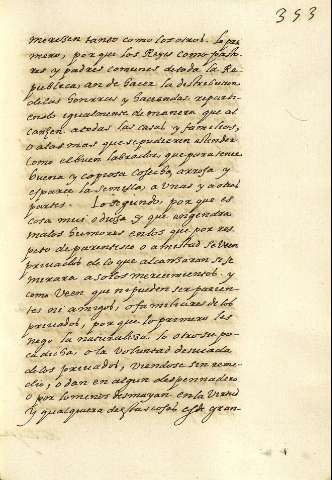 353
merezen tanto como los otros. lo pri-
mero, por que los Reyes como pasto-
res y padres comunes de toda la Re-
publica, an de hazer la destribucion
de las honrras y haciendas reparti-
endo igualmente de manera que al-
cansen a todas las casas y familias,
o a las mas que se pudieren estender
como el buen labrador, que para tener
buena y copiosa cosecha, arroja y
esparce la semilla, a unas y a otras
partes. Lo segundo, por que es
cosa mui odiosa y que engendra
malos humores en los que por res-
peto de parentesco o amistad se veen
privados de lo que alcansaran se se
mirara a solos merecimientos. y
como veen que ni pueden ser parien-
tes ni amigos, o familiares de los
privados, por que lo primero les
nego la naturaleza. lo otro su po-
ca dicha, o la voluntad desviada
de los privados, viendose sin reme-
dio, o dan en algun despennadero
o por lo menos desmayan en la virtud
y qualquiera destas cosas es de gran-